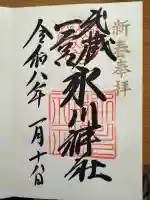 新春奉拝
武蔵
一宮
氷川神社
令和八年一月十六日